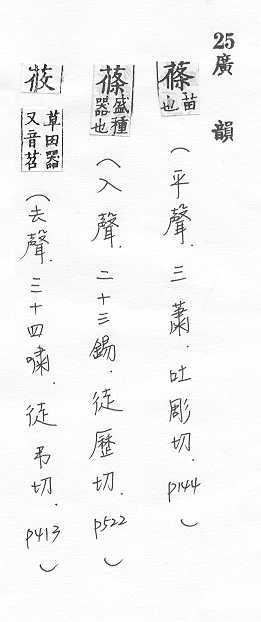 25
廣韻
蓧 苗也 (平聲.三蕭.吐彫切.p144)
蓧 盛種器也 (入聲.二十三錫.徒歷切.p522)
莜 草田器又音苕 (去聲.三十四嘯.徒弔切.p413)